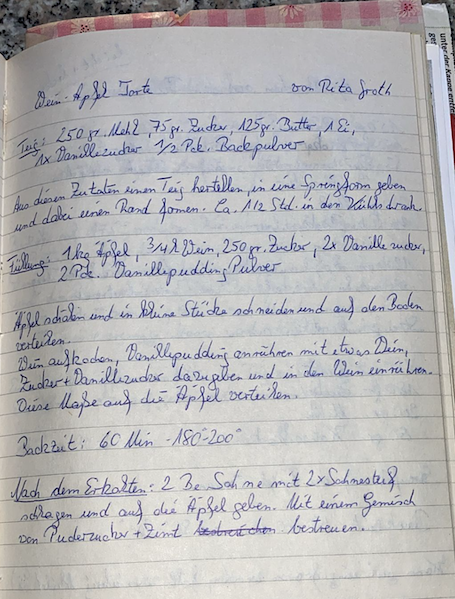 Wein-Apfel Torte von Rita Groth
Teig: 250 gr. Mehl, 75 gr. Zucker, 125 gr. Butter, 1 Ei,
1x Vanillezucker 1/2 Pck. Backpulver
Aus diesen Zutaten einen Teig herstellen, in eine Springform geben
und dabei einen Rand formen. Ca. 1/2 Std. in den Kühlschrank
Füllung: 1 kg Äpfel, 3/4 l Wein, 250 gr. Zucker, 2x Vanillezucker,
2 Pck. Vanillepudding Pulver
Äpfel schälen und in kleine Stücke schneiden und auf den Boden
verteilen.
Wein aufkochen, Vanillepudding anrühren mit etwas Wein,
Zucker + Vanillezucker dazugeben und in den Wein einrühren.
Diese Maße auf die Äpfel verteilen.
Backzeit: 60 Min - 180°-200°
Nach dem Erkalten: 2 Be Sahne mit 2x Sahnesteif
schlagen und auf die Äpfel geben. Mit einem Gemisch
von Puderzucker + Zimt bestreuen.
unter der Kasse